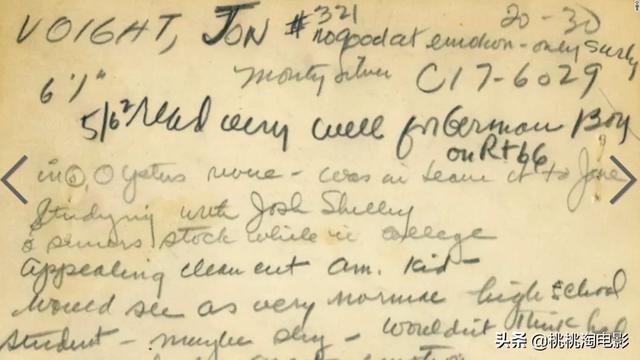 VOIGHT, JON #321 20-30
no good at emotion - only surly
6'1" Monty Silver CI7-6029
5/62 read very well for German Boy
on Rt 66
in O, Oysters none - was in Leave it to Jane
Studying with Josh Shelley
seasons stock while in college
Appealing clean cut Am. Kid -
Would see as very normal high school
student - maybe shy - wouldn't think had
头条 @桃桃淘电影